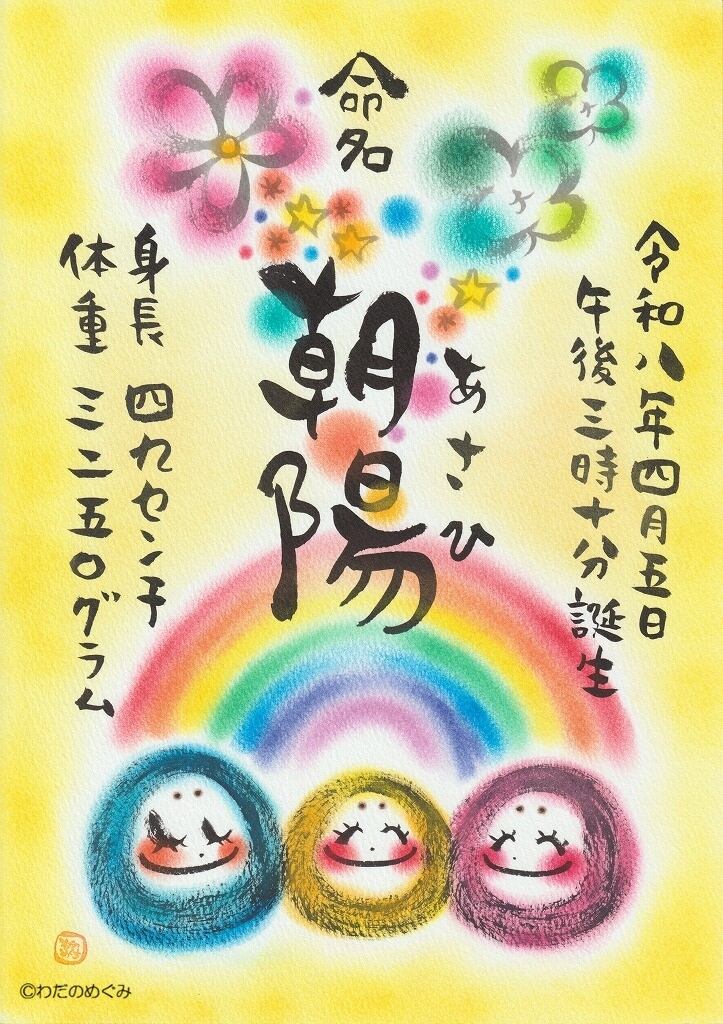 命名
令和八年四月五日
午後三時十分誕生
あさひ
朝陽
身長 四九センチ
体重 三二五〇グラム
©わだのめぐみ